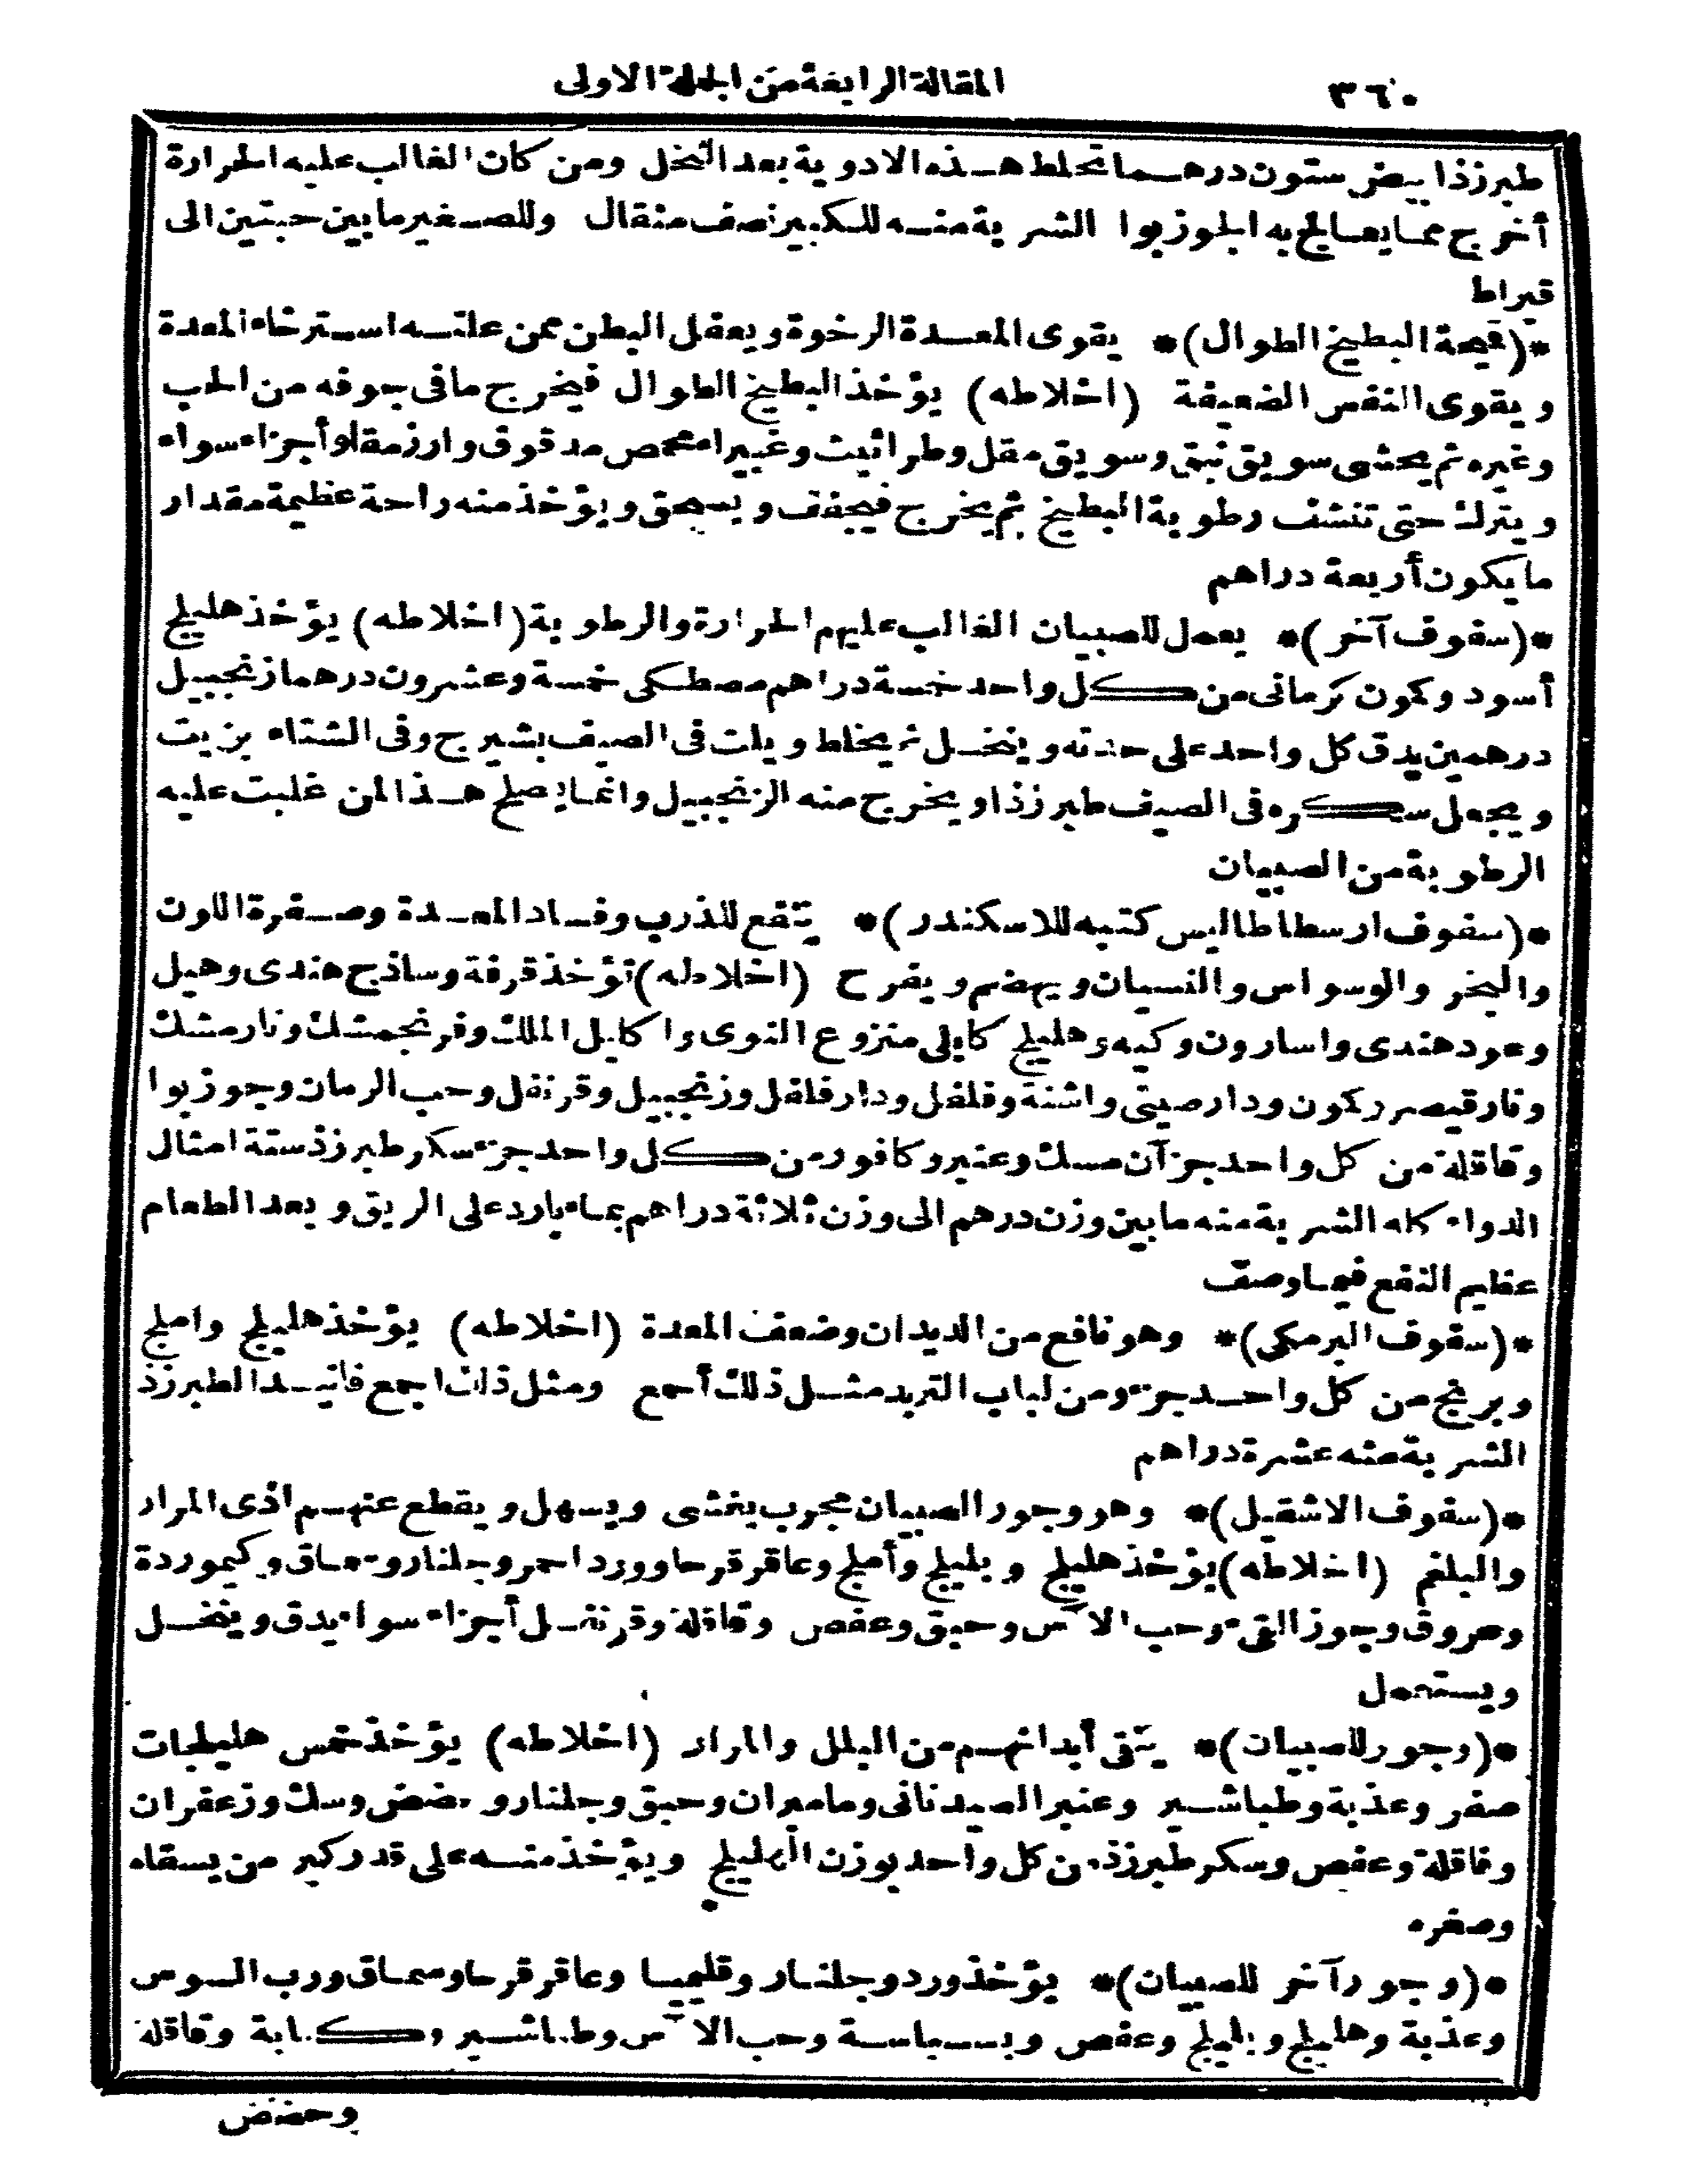 ٣٦٠
المقالة الرابعة من الجملة الاولى
طبرزذ ابيض ستون درهما تخلط هذه الادوية بعد النخل ومن كان الغالب عليه الحرارة
أخرج مما يعالج به الجوزبوا الشربة منه للكبير نصف مثقال وللصغير ما بين حبتين الى
قيراط
*(قميحة البطيخ الطوال)* يقوى المعدة الرخوة ويعقل البطن ممن علته استرخاء المعدة
ويقوى النفس الضعيفة (اخلاطه) يؤخذ البطيخ الطوال فيخرج ما فى جوفه من الحب
وغيره ثم يحشى سويق نبق وسويق مقل وطراثيث وغبيراء محمص مدقوق وارز مقلو أجزاء سواء
ويترك حتى تنشف رطوبة البطيخ ثم يخرج فيجفف ويسحق ويؤخذ منه راحة عظيمة مقدار
ما يكون أربعة دراهم
*(سفوف آخر)* يعمل للصبيان الغالب عليهم الحرارة والرطوبة (اخلاطه) يؤخذ هليلج
أسود وكمون كرمانى من كل واحد خمسة دراهم مصطكى خمسة وعشرون درهما زنجبيل
درهمين يدق كل واحد على حدته وينخل ثم يخلط ويلت فى الصيف بشيرج وفى الشتاء بزيت
ويجعل سكره فى الصيف طبرزذا ويخرج منه الزنجبيل وانما يصلح هذا لمن غلبت عليه
الرطوبة من الصبيان
*(سفوف ارسطاطاليس كتبه للاسكندر)* ينفع للذرب وفساد المعدة وصفرة اللون
والبخر والوسواس والنسيان ويهضم ويفرح (اخلاطه) تؤخذ قرفة وساذج هندى وهيل
وعود هندى واسارون وكيه وهليلج كابلى منزوع النوى واكليل الملك وفرنجمشك ونارمشك
ونارقيصر وكمون ودارصينى واشنة وفلفل ودارفلفل وزنجبيل وقرنفل وحب الرمان وجوزبوا
وقاقلة من كل واحد جزآن مسك وعنبر وكافور من كل واحد جزء سكر طبرزذ ستة امثال
الدواء كله الشربة منه ما بين وزن درهم الى وزن ثلاثة دراهم بماء بارد على الريق وبعد الطعام
عظيم النفع فيما وصف
*(سفوف البرمكى)* وهو نافع من الديدان وضعف المعدة (اخلاطه) يؤخذ هليلج واملج
وبرنج من كل واحد جزء ومن لباب التربد مثل ذلك أجمع ومثل ذلك اجمع فانيد الطبرزذ
الشربة منه عشرة دراهم
*(سفوف الاشقيل)* وهو وجور الصبيان مجرب يغثى ويسهل ويقطع عنهم اذى المرار
والبلغم (اخلاطه) يؤخذ هليلج وبليلج وأملج وعاقرقرحا وورد احمر وجلنار وسماق وكيموردة
وعروق وجوز القئ وحب الآس وحبق وعفص وقاقلة وقرنفل أجزاء سواء يدق وينخل
ويستعمل
*(وجور للصبيان)* ينقى أبدانهم من البلل والمرار (اخلاطه) يؤخذ خمس هليلجات
صفر وعذبة وطباشير وعنبر الصيدنانى وماميران وحبق وجلنار وحضض وسك وزعفران
وقاقلة وعفص وسكر طبرزذ من كل واحد بوزن الهليلج ويؤخذ منه على قدر كبر من يسقاه
وصغره
*(وجور آخر للصبيان)* يؤخذ ورد وجلنار وقليميا وعاقرقرحا وسماق ورب السوس
وعذبة وهليلج وبليلج وعفص وبسباسة وحب الآس وطباشير وكبابة وقاقلة
وحضض